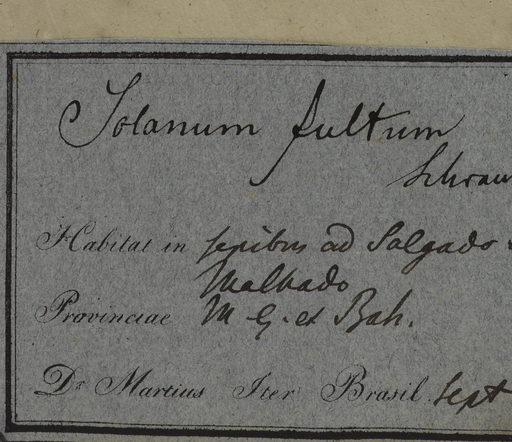 Solanum fultum
Schran
Habitat in sepibus ad Salgado
Malhado
Provinciae M G. et Bah.
Dr Martius Iter Brasil. Sept